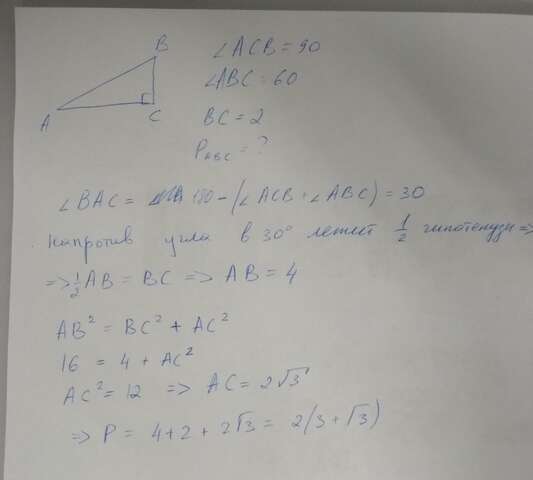 ∠ACB = 90
∠ABC = 60
B
A
C
BC = 2
P_ABC = ?
∠BAC = 180 - (∠ACB + ∠ABC) = 30
Напротив угла в 30° лежит 1/2 гипотенузы =>
=> 1/2 AB = BC => AB = 4
AB² = BC² + AC²
16 = 4 + AC²
AC² = 12 => AC = 2√3
=> P = 4+2+2√3 = 2(3+√3)